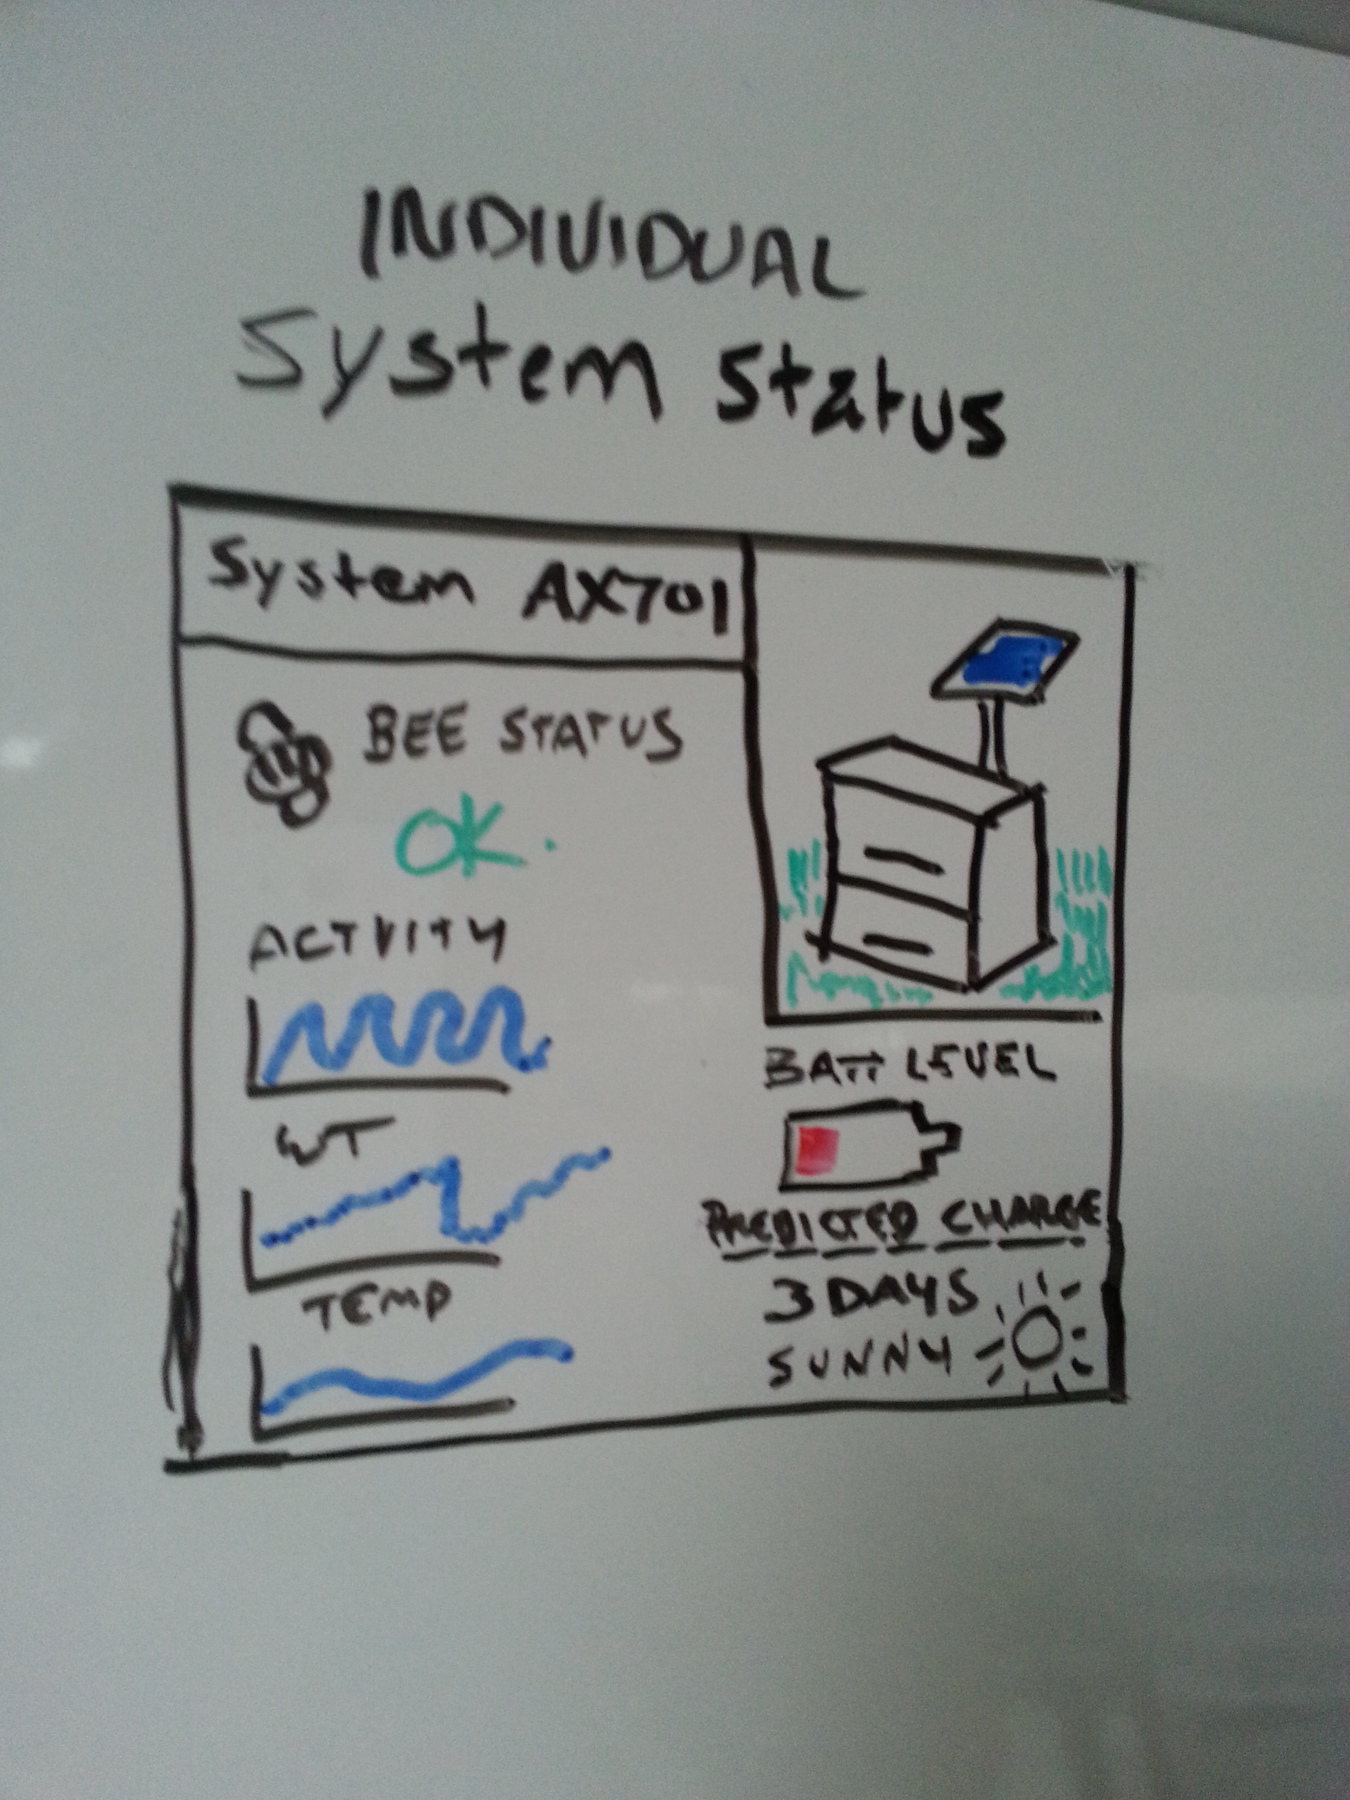 INDIVIDUAL
System Status
System AX701
BEE STATUS
OK.
ACTIVITY
WT
TEMP
BATT LEVEL
PREDICTED CHARGE
3 DAYS
SUNNY